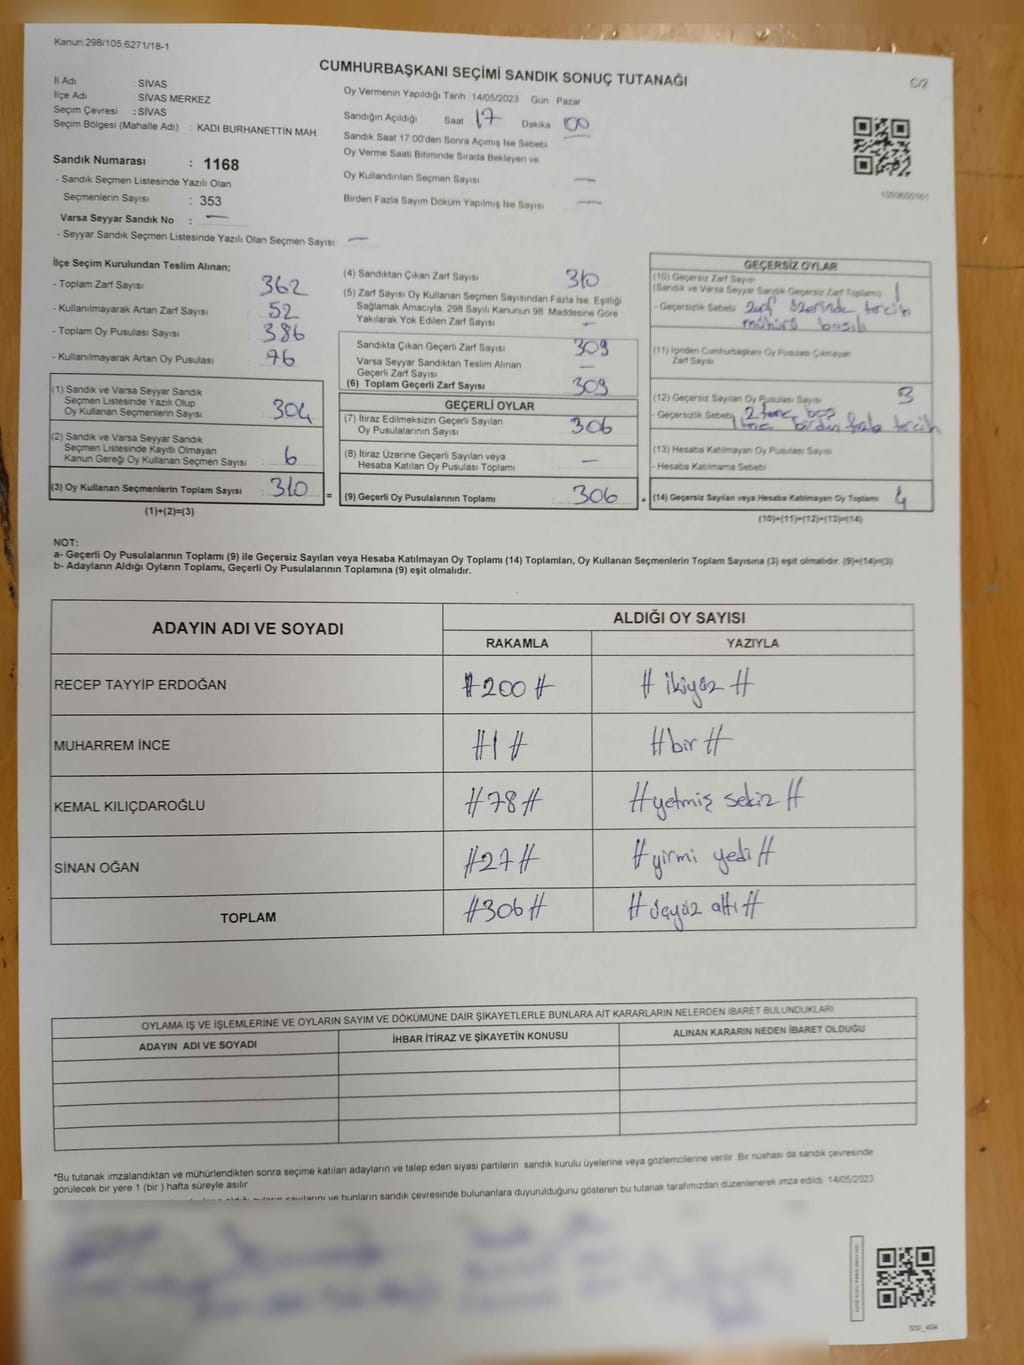 Kanun:298/105,6271/18-1
CUMHURBAŞKANI SEÇİMİ SANDIK SONUÇ TUTANAĞI
C/2
İl Adı : SİVAS
İlçe Adı : SİVAS MERKEZ
Seçim Çevresi : SİVAS
Seçim Bölgesi (Mahalle Adı) : KADI BURHANETTİN MAH.
Sandık Numarası : 1168
- Sandık Seçmen Listesinde Yazılı Olan
Seçmenlerin Sayısı : 353
Varsa Seyyar Sandık No : —
- Seyyar Sandık Seçmen Listesinde Yazılı Olan Seçmen Sayısı —
Oy Vermenin Yapıldığı Tarih 14/05/2023 Gün Pazar
Sandığın Açıldığı Saat 17 Dakika 00
Sandık Saat 17:00'den Sonra Açımış İse Sebebi
Oy Verme Saati Bitiminde Sırada Bekleyen ve
Oy Kullandırılan Seçmen Sayısı —
Birden Fazla Sayım Döküm Yapılmış İse Sayısı —
İlçe Seçim Kurulundan Teslim Alınan;
- Toplam Zarf Sayısı 362
- Kullanılmayarak Artan Zarf Sayısı 52
- Toplam Oy Pusulası Sayısı 386
- Kullanılmayarak Artan Oy Pusulası 76
(1) Sandık ve Varsa Seyyar Sandık
Seçmen Listesinde Yazılı Olup
Oy Kullanan Seçmenlerin Sayısı 304
(2) Sandık ve Varsa Seyyar Sandık
Seçmen Listesinde Kayıtlı Olmayan
Kanun Gereği Oy Kullanan Seçmen Sayısı 6
(3) Oy Kullanan Seçmenlerin Toplam Sayısı : 310 =
(1)+(2)=(3)
(4) Sandıktan Çıkan Zarf Sayısı 310
(5) Zarf Sayısı Oy Kullanan Seçmen Sayısından Fazla İse, Eşitliği
Sağlamak Amacıyla, 298 Sayılı Kanunun 98. Maddesine Göre
Yakılarak Yok Edilen Zarf Sayısı —
Sandıkta Çıkan Geçerli Zarf Sayısı 309
Varsa Seyyar Sandıktan Teslim Alınan
Geçerli Zarf Sayısı —
(6) Toplam Geçerli Zarf Sayısı 309
GEÇERLİ OYLAR
(7) İtiraz Edilmeksizin Geçerli Sayılan
Oy Pusulalarının Sayısı 306
(8) İtiraz Üzerine Geçerli Sayılan veya
Hesaba Katılan Oy Pusulası Toplamı —
(9) Geçerli Oy Pusulalarının Toplamı 306 +
GEÇERSİZ OYLAR
(10) Geçersiz Zarf Sayısı
(Sandık ve Varsa Seyyar Sandık Geçersiz Zarf Toplamı) 1
- Geçersizlik Sebebi zarf üzerinde tercih
mühürü basılı
(11) İçinden Cumhurbaşkanı Oy Pusulası Çıkmayan
Zarf Sayısı
(12) Geçersiz Sayılan Oy Pusulası Sayısı 3
- Geçersizlik Sebebi 2 tane boş
1 tane birden fazla tercih
(13) Hesaba Katılmayan Oy Pusulası Sayısı
- Hesaba Katılmama Sebebi
(14) Geçersiz Sayılan veya Hesaba Katılmayan Oy Toplamı 4
(10)+(11)+(12)+(13)=(14)
NOT:
a- Geçerli Oy Pusulalarının Toplamı (9) ile Geçersiz Sayılan veya Hesaba Katılmayan Oy Toplamı (14) Toplamları, Oy Kullanan Seçmenlerin Toplam Sayısına (3) eşit olmalıdır. (9)+(14)=(3)
b- Adayların Aldığı Oyların Toplamı, Geçerli Oy Pusulalarının Toplamına (9) eşit olmalıdır.
ADAYIN ADI VE SOYADI ALDIĞI OY SAYISI
RAKAMLA YAZIYLA
RECEP TAYYİP ERDOĞAN #200# #ikiyüz#
MUHARREM İNCE #1# #bir#
KEMAL KILIÇDAROĞLU #78# #yetmiş sekiz#
SİNAN OĞAN #27# #yirmi yedi#
TOPLAM #306# #üçyüz altı#
OYLAMA İŞ VE İŞLEMLERİNE VE OYLARIN SAYIM VE DÖKÜMÜNE DAİR ŞİKAYETLERLE BUNLARA AİT KARARLARIN NELERDEN İBARET BULUNDUKLARI
ADAYIN ADI VE SOYADI İHBAR İTİRAZ VE ŞİKAYETİN KONUSU ALINAN KARARIN NEDEN İBARET OLDUĞU
*Bu tutanak imzalandıktan ve mühürlendikten sonra seçime katılan adayların ve talep eden siyasi partilerin sandık kurulu üyelerine veya gözlemcilerine verilir. Bir nüshası da sandık çevresinde
görülecek bir yere 1 (bir ) hafta süreyle asılır.
sayılarını ve bunların sandık çevresinde bulunanlara duyurulduğunu gösteren bu tutanak tarafımızdan düzenlenerek imza edildi. 14/05/2023